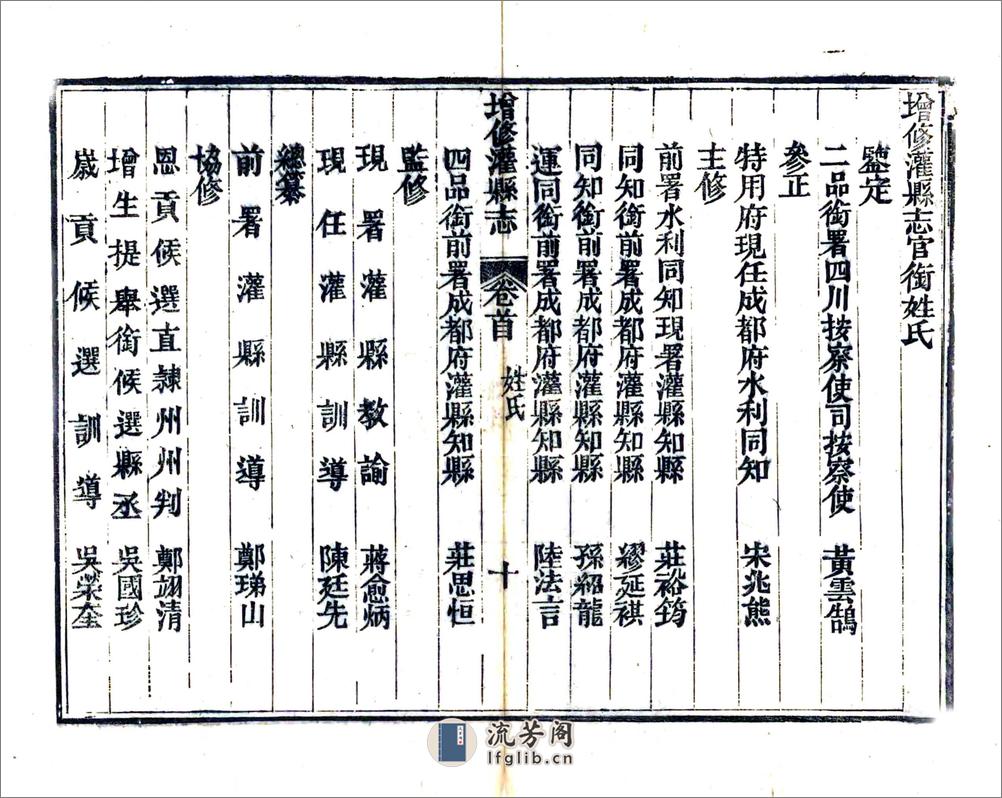 增修灌縣志官銜姓氏
鑒定
二品銜署四川按察使司按察使 黃雲鵠
參正
特用府現任成都府水利同知 宋兆熊
主修
前署水利同知現署灌縣知縣 莊裕筠
同知銜前署成都府灌縣知縣 繆延祺
同知銜前署成都府灌縣知縣 孫紹龍
運同銜前署成都府灌縣知縣 陸法言
增修灌縣志 卷首 姓氏 十
四品銜前署成都府灌縣知縣 莊思恒
監修
現署灌縣教諭 蔣愈炳
現任灌縣訓導 陳廷先
總纂
前署灌縣訓導 鄭珶山
協修
恩貢候選直隸州州判 鄭翊清
增生提舉銜候選縣丞 吳國珍
歲貢候選訓導 吳榮奎
流芳阁
lfglib.cn